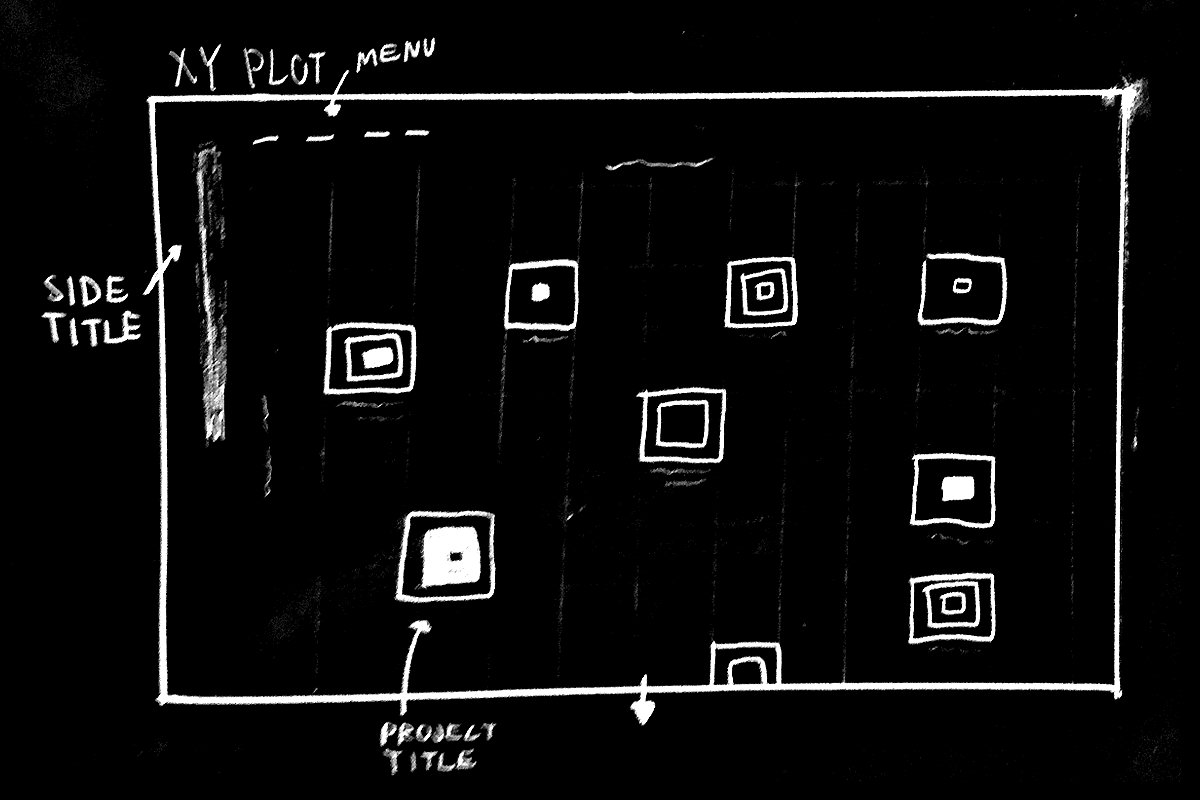 XY PLOT
MENU
SIDE
TITLE
PROJECT
TITLE